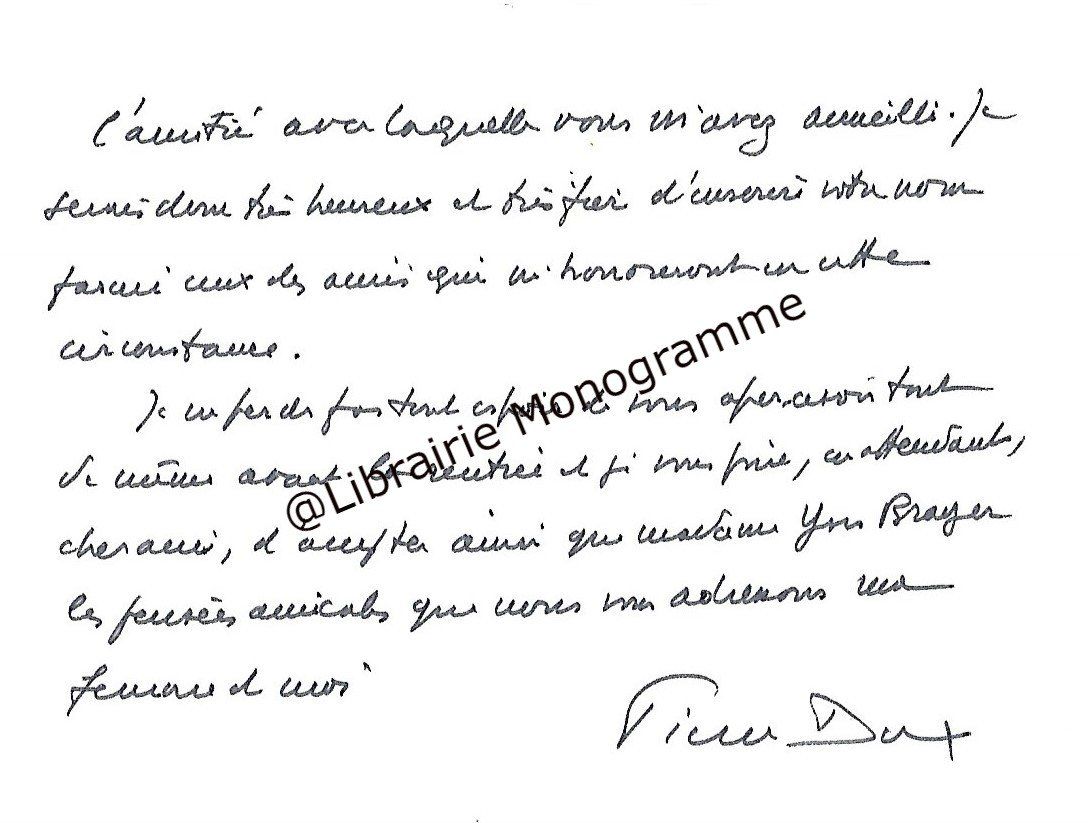 l'amitié avec laquelle vous m'avez accueilli. Je
serais donc très heureux et très fier d'inscrire votre nom
parmi ceux des amis qui m'honoreront en cette
circonstance.
Je ne perds pas tout espoir de vous apercevoir tout
de même avant la rentrée et je vous prie, en attendant,
cher ami, d'accepter ainsi que madame Yves Brayer
les pensées amicales que nous vous adressons ma
femme et moi
Pierre Dux
@Librairie Monogramme